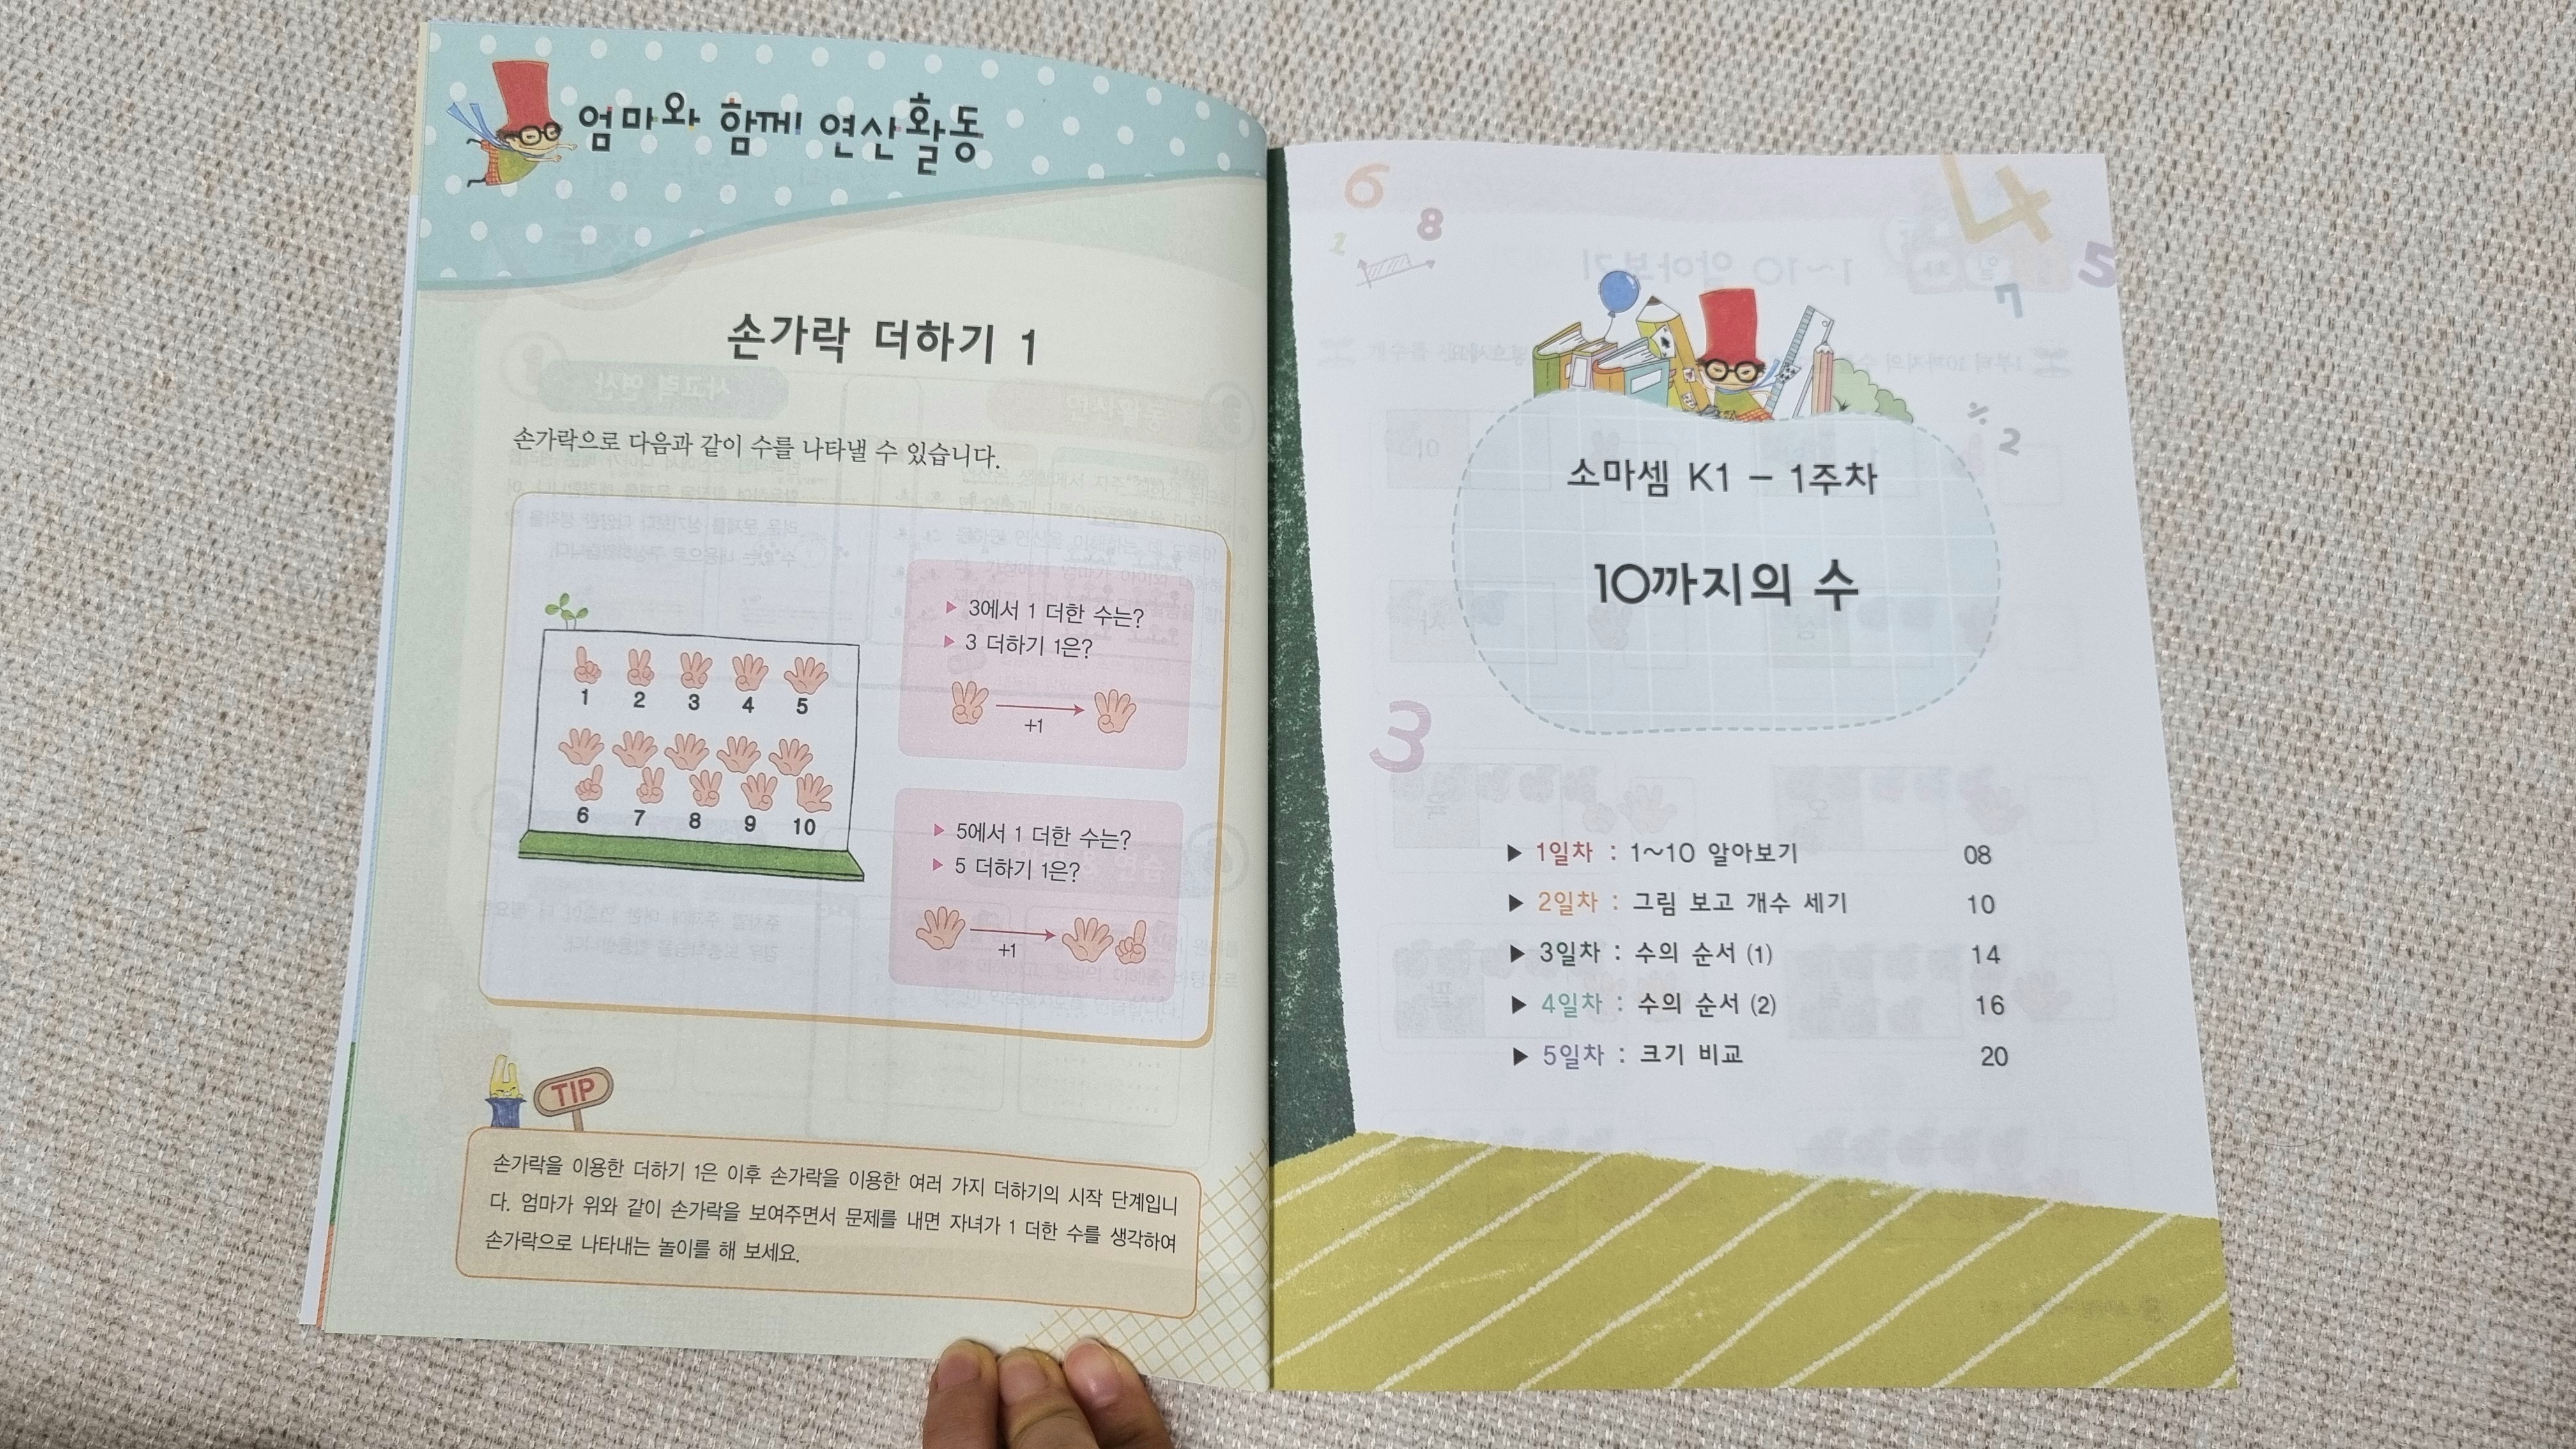 엄마와 함께 연산활동
손가락 더하기 1
손가락으로 다음과 같이 수를 나타낼 수 있습니다.
1 2 3 4 5
6 7 8 9 10
▶ 3에서 1 더한 수는?
▶ 3 더하기 1은?
+1
▶ 5에서 1 더한 수는?
▶ 5 더하기 1은?
+1
TIP
손가락을 이용한 더하기 1은 이후 손가락을 이용한 여러 가지 더하기의 시작 단계입니
다. 엄마가 위와 같이 손가락을 보여주면서 문제를 내면 자녀가 1 더한 수를 생각하여
손가락으로 나타내는 놀이를 해 보세요.
6
8
1
4
5
7
÷
2
3
소마셈 K1 - 1주차
10까지의 수
▶ 1일차 : 1~10 알아보기 08
▶ 2일차 : 그림 보고 개수 세기 10
▶ 3일차 : 수의 순서 (1) 14
▶ 4일차 : 수의 순서 (2) 16
▶ 5일차 : 크기 비교 20